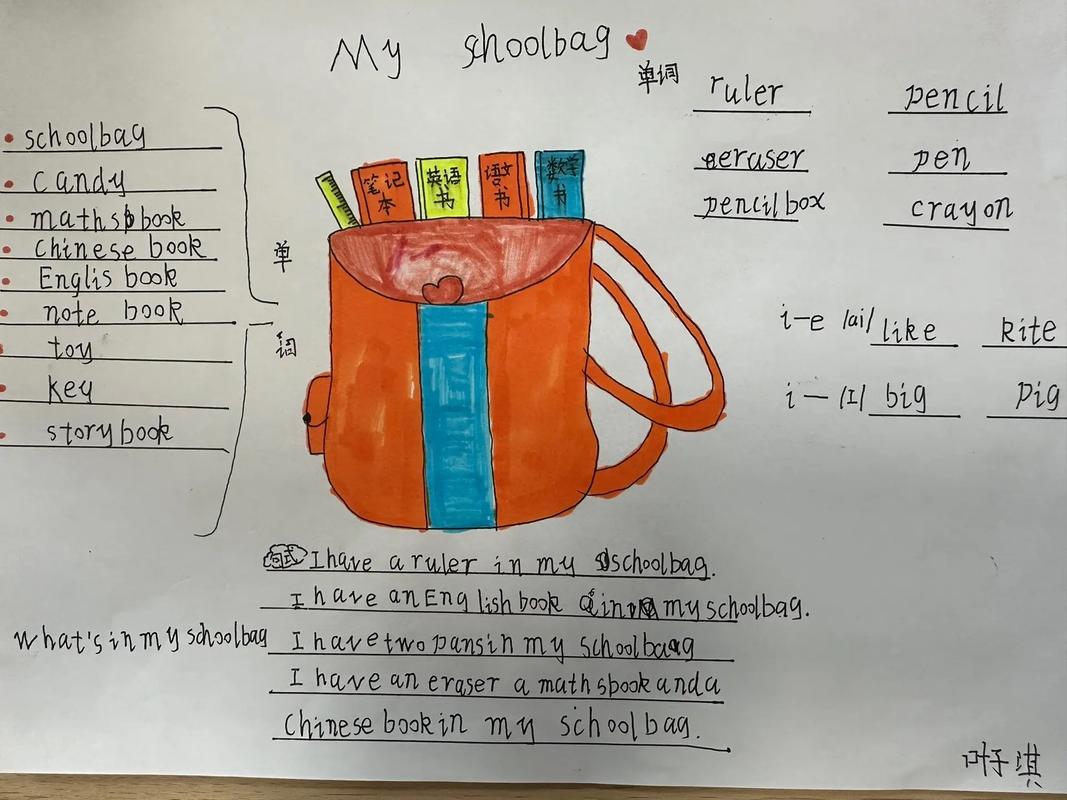 My schoolbag
单词
ruler pencil
eraser pen
pencilbox crayon
schoolbag
candy
mathsbook
Chinese book
Englis book
note book
toy
key
storybook
单
词
笔记
本
英语
书
语文
书
数学
书
i-e /ai/ like kite
i— /I/ big pig
句式 I have a ruler in my schoolbag.
I have an English book in my schoolbag.
what's in my schoolbag I have two pans in my schoolbag
I have an eraser a mathsbook and a
Chinese book in my schoolbag.
叶子淇